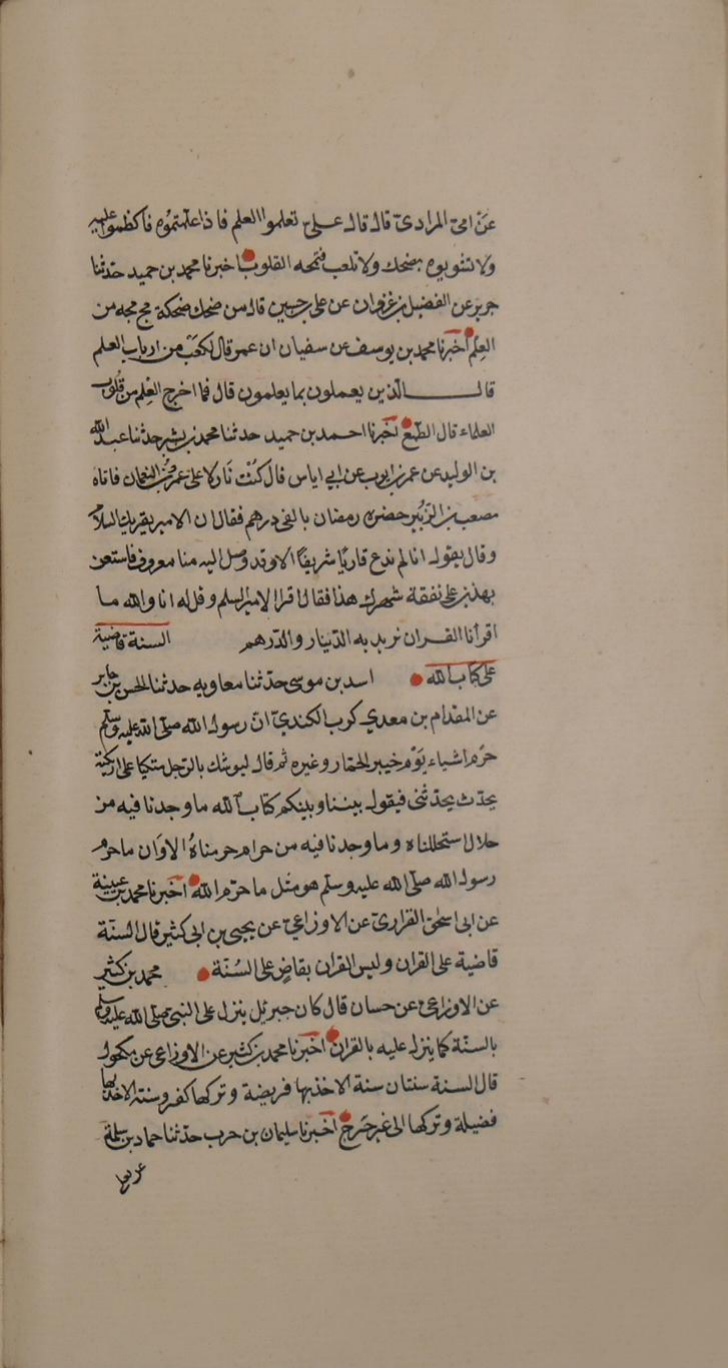 عن امي المرادي قال قال علي تعلموا العلم فاذا علمتموه فاكظموا عليه
ولا تشوبوه بضحك ولا تلعب فتمجه القلوب اخبرنا محمد بن حميد حدثنا
جرير عن الفضيل بن غزوان عن علي بن حسين قال من ضحك ضحكة مج مجه من
العلم اخبرنا محمد بن يوسف عن سفيان ان عمر قال لكعب من ارباب العلم
قال الذين يعملون بما يعلمون قال فما اخرج العلم من قلوب
العلماء قال الطمع اخبرنا احمد بن حميد حدثنا محمد بن بشر حدثنا عبد الله
بن الوليد عن عمر بن ايوب عن ابي اياس قال كنت نازلا على عمرو بن النعمان فاتاه
مصعب بن الزبير حضره رمضان بالفي درهم فقال ان الامير يقريك السلام
وقال يقول انا لم ندع قاريا شريفا الا وقد وصل اليه منا معروف فاستعن
بهذين على نفقة شهرك هذا فقال اقرا الامير السلم وقل له انا والله ما
اقرأنا القران نريد به الدينار والدرهم السنة قاضية
على كتاب الله اسد بن موسى حدثنا معاويه حدثنا الحسن بن جابر
عن المقدام بن معدي كرب الكندي ان رسول الله صلى الله عليه وسلم
حرم اشياء يوم خيبر الحمار وغيره ثم قال ليوشك بالرجل متكيا على اريكته
يحدث بحديثي فيقول بيننا وبينكم كتاب الله ما وجدنا فيه من
حلال استحللناه وما وجدنا فيه من حرام حرمناه الا وان ما حرم
رسول الله صلى الله عليه وسلم هو مثل ما حرم الله اخبرنا محمد بن عيينة
عن ابي اسحق الفزاري عن الاوزاعي عن يحيى بن ابي كثير قال السنة
قاضية على القران وليس القران بقاض على السنة محمد بن كثير
عن الاوزاعي عن حسان قال كان جبرئل ينزل على النبي صلى الله عليه وسلم
بالسنة كما ينزل عليه بالقران اخبرنا محمد بن كثير عن الاوزاعي عن مكحول
قال السنة سنتان سنة الاخذ بها فريضة وتركها كفر وسنة الاخذ بها
فضيلة وتركها الى غير حرج اخبرنا سليمان بن حرب حدثنا حماد بن سلمة